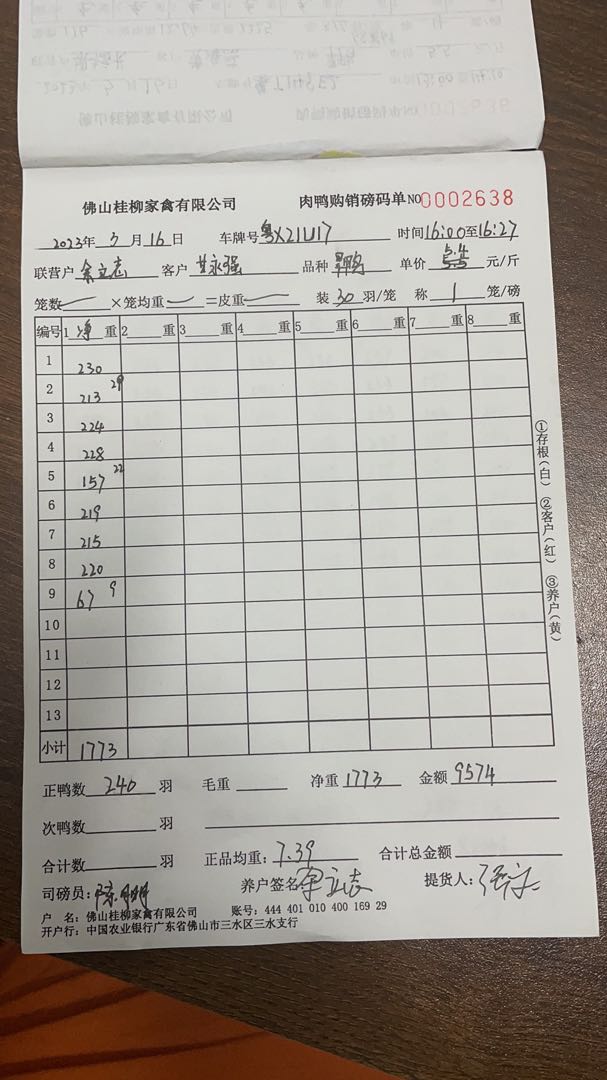 佛山桂柳家禽有限公司 肉鸭购销磅码单 NO 0002638
2023年 7月 16日 车牌号 粤X21U17 时间 16:00至16:27
联营户 余立志 客户 永强 品种 鸭 单价 5.4 元/斤
笼数 ×笼均重 =皮重 装 30 羽/笼 称 1 笼/磅
编号 1 净 重 2 重 3 重 4 重 5 重 6 重 7 重 8 重
1 230
2 213 29
3 224
4 228
5 157 22
6 219
7 215
8 220
9 67 9
10
11
12
13
小计 1773
①存根(白) ②客户(红) ③养户(黄)
正鸭数 240 羽 毛重 净重 1773 金额 9574
次鸭数 羽
合计数 羽 正品均重: 7.39 合计总金额
司磅员: 陈 养户签名 余立志 提货人:
户 名: 佛山桂柳家禽有限公司 账号: 444 401 010 400 169 29
开户行: 中国农业银行广东省佛山市三水区三水支行